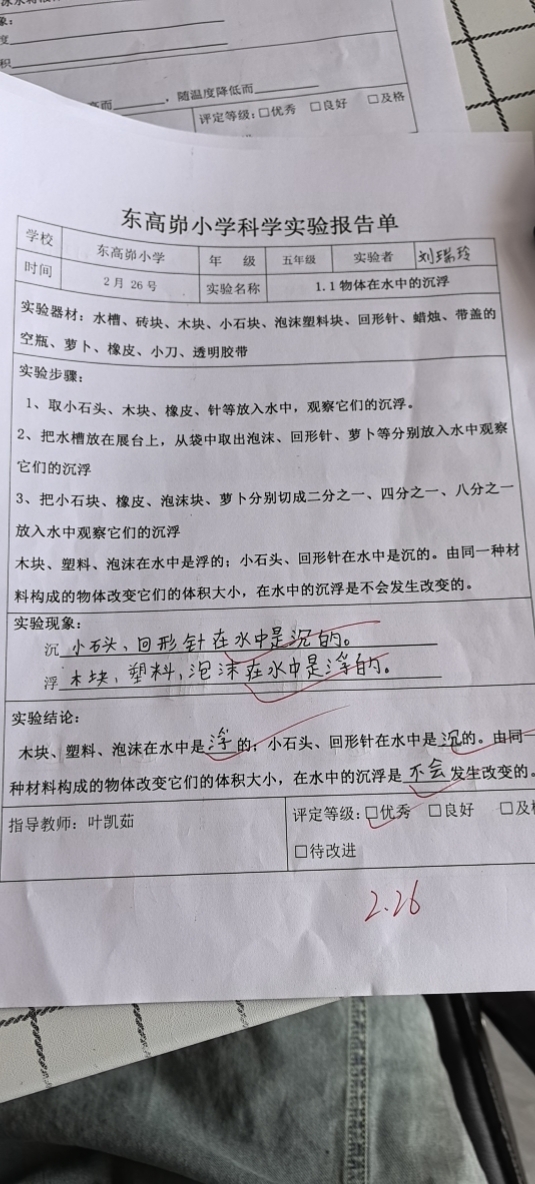 度
积
，随温度降低而
评定等级：□优秀 □良好 □及格
东高峁小学科学实验报告单
学校 东高峁小学 年 级 五年级 实验者 刘瑞玲
时间 2月26号 实验名称 1.1物体在水中的沉浮
实验器材：水槽、砖块、木块、小石块、泡沫塑料块、回形针、蜡烛、带盖的
空瓶、萝卜、橡皮、小刀、透明胶带
实验步骤：
1、取小石头、木块、橡皮、针等放入水中，观察它们的沉浮。
2、把水槽放在展台上，从袋中取出泡沫、回形针、萝卜等分别放入水中观察
它们的沉浮
3、把小石块、橡皮、泡沫块、萝卜分别切成二分之一、四分之一、八分之一
放入水中观察它们的沉浮
木块、塑料、泡沫在水中是浮的；小石头、回形针在水中是沉的。由同一种材
料构成的物体改变它们的体积大小，在水中的沉浮是不会发生改变的。
实验现象：
沉 小石头、回形针在水中是沉的。
浮 木块，塑料，泡沫在水中是浮的。
实验结论：
木块、塑料、泡沫在水中是浮的；小石头、回形针在水中是沉的。由同一
种材料构成的物体改变它们的体积大小，在水中的沉浮是不会发生改变的。
指导教师：叶凯茹
评定等级：□优秀 □良好 □及
□待改进
2.26